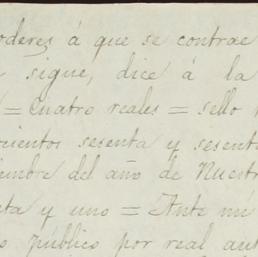 oderes á que se contrae
sigue, dice á la
= Cuatro reales = sello
cientos sesenta y sesent
iembre del año de Nuestr
ta y uno = Ante mi
público por real aut